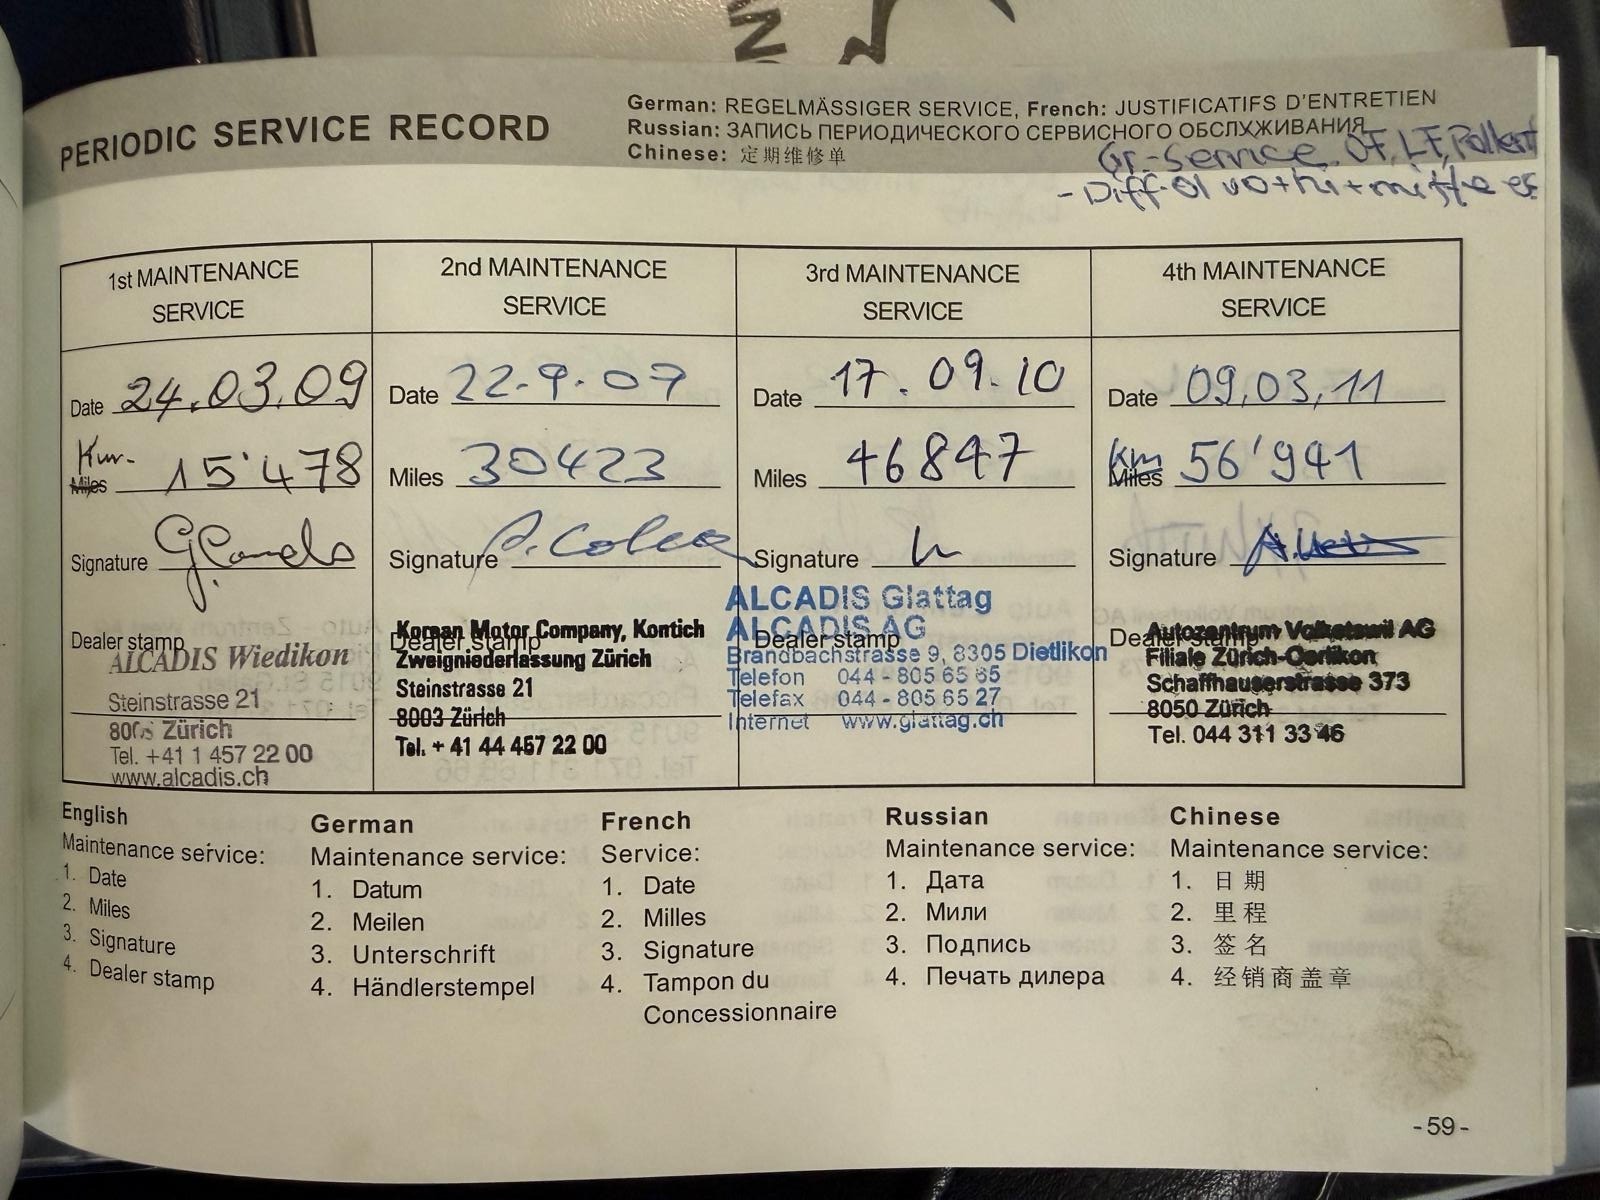 PERIODIC SERVICE RECORD
German: REGELMÄSSIGER SERVICE, French: JUSTIFICATIFS D'ENTRETIEN
Russian: ЗАПИСЬ ПЕРИОДИЧЕСКОГО СЕРВИСНОГО ОБСЛУЖИВАНИЯ
Chinese: 定期维修单
Gr.-Service OF, LF, Pollenf
- Diff.öl vo+hi+mitte
1st MAINTENANCE
SERVICE
24.03.09
Date
Km-
15'478
Miles
Signature
Dealer stamp
ALCADIS Wiedikon
Steinstrasse 21
Zürich
Tel. +41 1 457 22 00
www.alcadis.ch
2nd MAINTENANCE
SERVICE
Date 22-9-09
Miles 30423
Signature
Dealer stamp
Korean Motor Company, Kontich
Zweigniederlassung Zürich
Steinstrasse 21
8003 Zürich
Tel. + 41 44 457 22 00
3rd MAINTENANCE
SERVICE
Date 17.09.10
Miles 46847
Signature
ALCADIS Glattag
ALCADIS AG
Dealer stamp
Brandbachstrasse 9, 8305 Dietlikon
Telefon 044 - 805 65 65
Telefax 044 - 805 65 27
Internet www.glattag.ch
4th MAINTENANCE
SERVICE
Date 09.03.11
Km 56'941
Miles
Signature
Dealer stamp
Autozentrum Volketswil AG
Filiale Zürich-Oerlikon
Schaffhauserstrasse 373
8050 Zürich
Tel. 044 311 33 46
English
Maintenance service:
1. Date
2. Miles
3. Signature
4. Dealer stamp
German
Maintenance service:
1. Datum
2. Meilen
3. Unterschrift
4. Händlerstempel
French
Service:
1. Date
2. Milles
3. Signature
4. Tampon du
Concessionnaire
Russian
Maintenance service:
1. Дата
2. Мили
3. Подпись
4. Печать дилера
Chinese
Maintenance service:
1. 日期
2. 里程
3. 签名
4. 经销商盖章
- 59 -